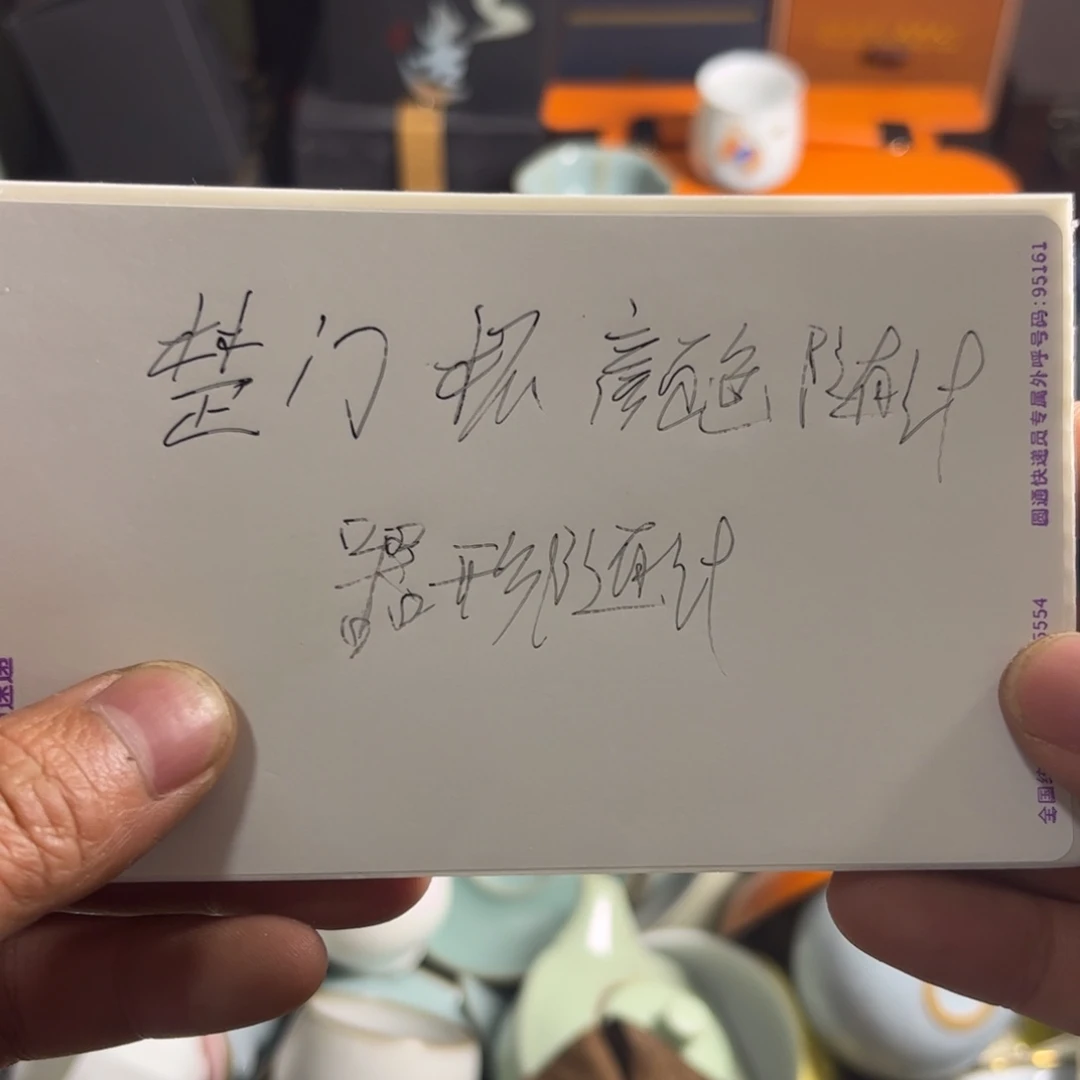 楚门 根 颜色 随计
器形随计
圆通快递员专属外呼号码:95161
5554
全国